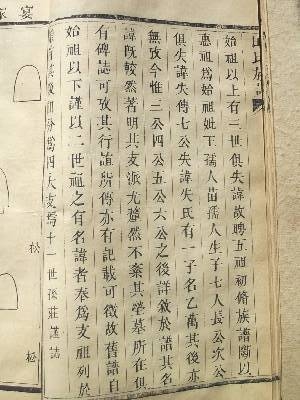 氏族譜
始祖以上有三世俱失諱故騁五祖初脩族譜斷以
惠祖為始祖妣王孺人苗孺人生子七人長公次公
俱失諱失傳七公失諱失氏有一子名乙萬其後亦
無攷今惟三公四公五公六公之後詳敘於譜其名
諱既較然著明其支派尤犛然不紊其塋墓所在俱
有碑誌可攷其行誼所傳亦有記載可徵故舊譜自
始祖以下謹以二世祖之有名諱者奉為支祖列於
其後分為四大支焉十一世孫莊謹誌
松
松